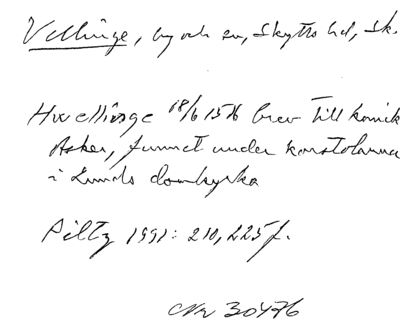 Vellinge, by och sn, Skytts hd, Sk.
Hwellinge 18/6 1516 brev till kanik
Asker, funnet under korstolarna
i Lunds domkyrka
Piltz 1991: 210, 225f.
Nr 30476